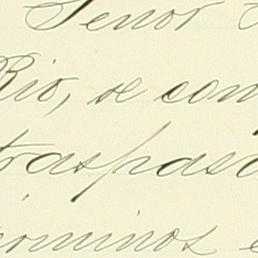 Senor
Rio, se com
traspasa
rominos